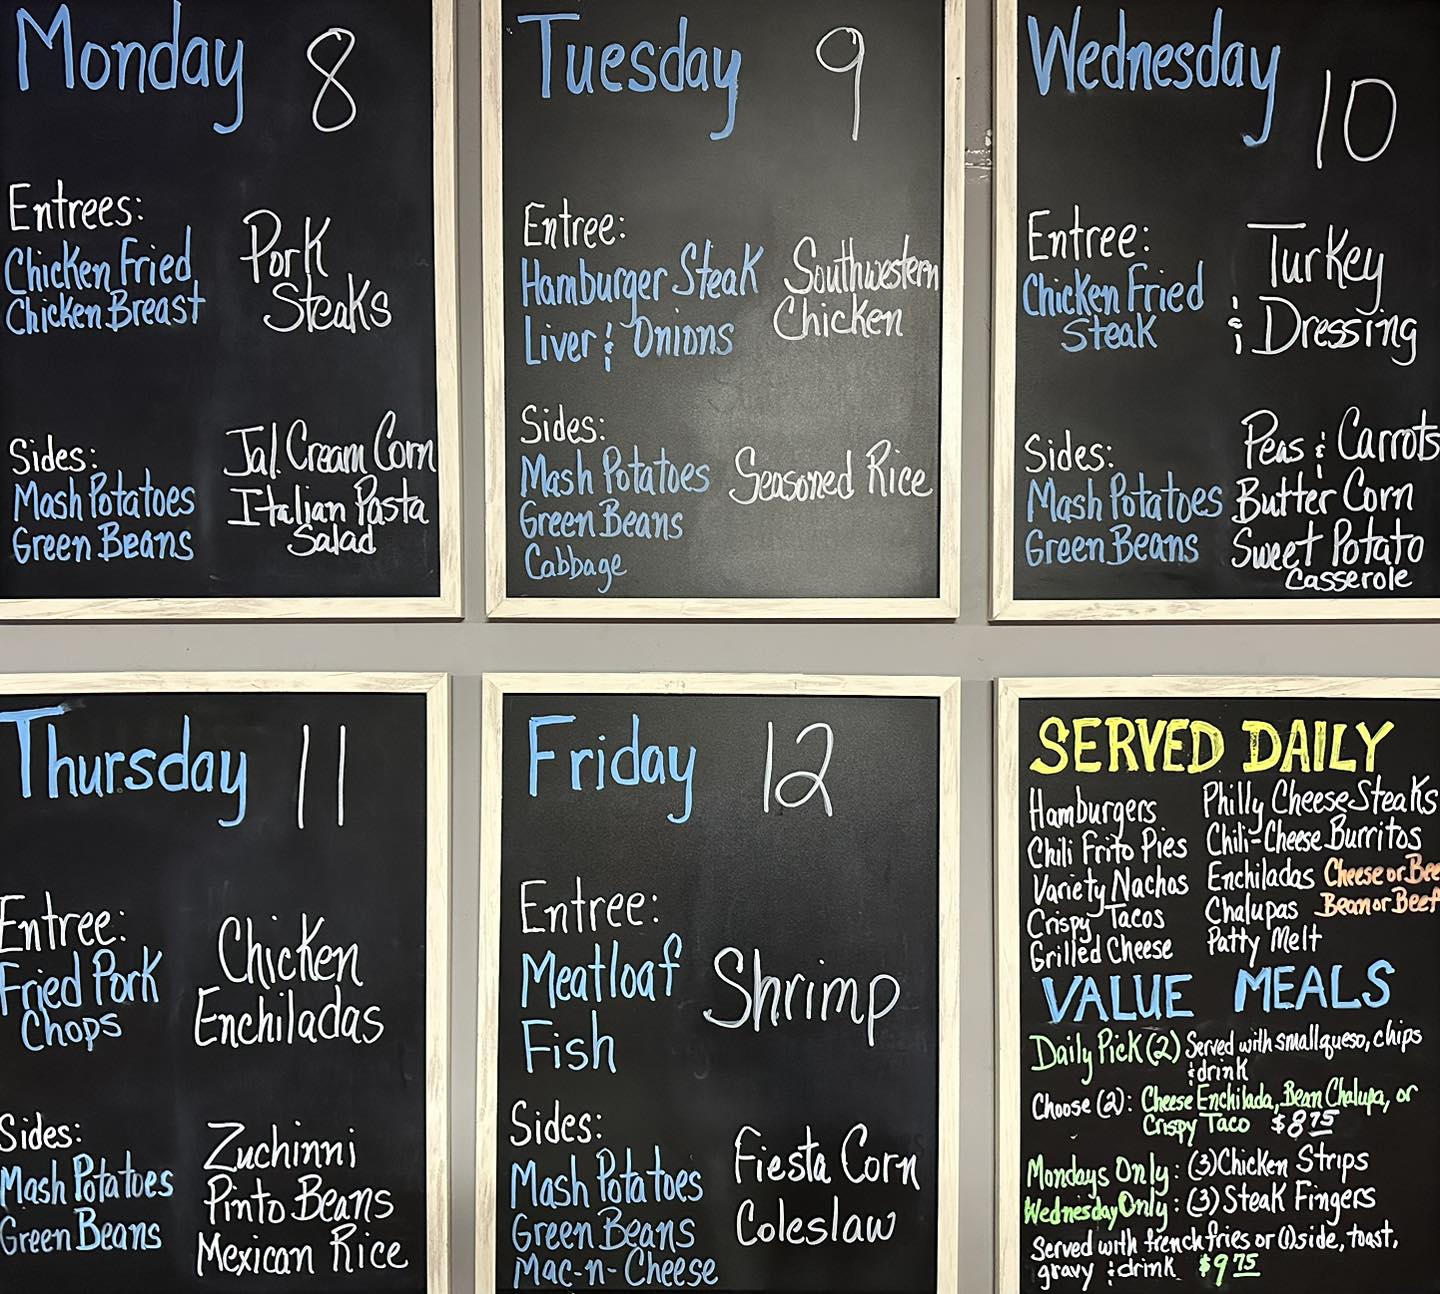 Monday 8
Entrees:
Chicken Fried
Chicken Breast
Pork
Steaks
Sides:
Mash Potatoes
Green Beans
Jal. Cream Corn
Italian Pasta
Salad
Tuesday 9
Entree:
Hamburger Steak
Liver & Onions
Southwestern
Chicken
Sides:
Mash Potatoes
Green Beans
Cabbage
Seasoned Rice
Wednesday 10
Entree:
Chicken Fried
Steak
Turkey
& Dressing
Sides:
Mash Potatoes
Green Beans
Peas & Carrots
Butter Corn
Sweet Potato
Casserole
Thursday 11
Entree:
Fried Pork
Chops
Chicken
Enchiladas
Sides:
Mash Potatoes
Green Beans
Zuchinni
Pinto Beans
Mexican Rice
Friday 12
Entree:
Meatloaf
Fish
Shrimp
Sides:
Mash Potatoes
Green Beans
Mac-n-Cheese
Fiesta Corn
Coleslaw
SERVED DAILY
Hamburgers
Chili Frito Pies
Variety Nachos
Crispy Tacos
Grilled Cheese
Philly Cheese Steaks
Chili-Cheese Burritos
Enchiladas Cheese or Bee
Chalupas Bean or Beef
Patty Melt
VALUE MEALS
Daily Pick (2) Served with small queso, chips
& drink
Choose (2): Cheese Enchilada, Bean Chalupa, or
Crispy Taco $8 75
Mondays Only: (3) Chicken Strips
Wednesday Only: (3) Steak Fingers
Served with french fries or (1) side, toast,
gravy & drink $9 75